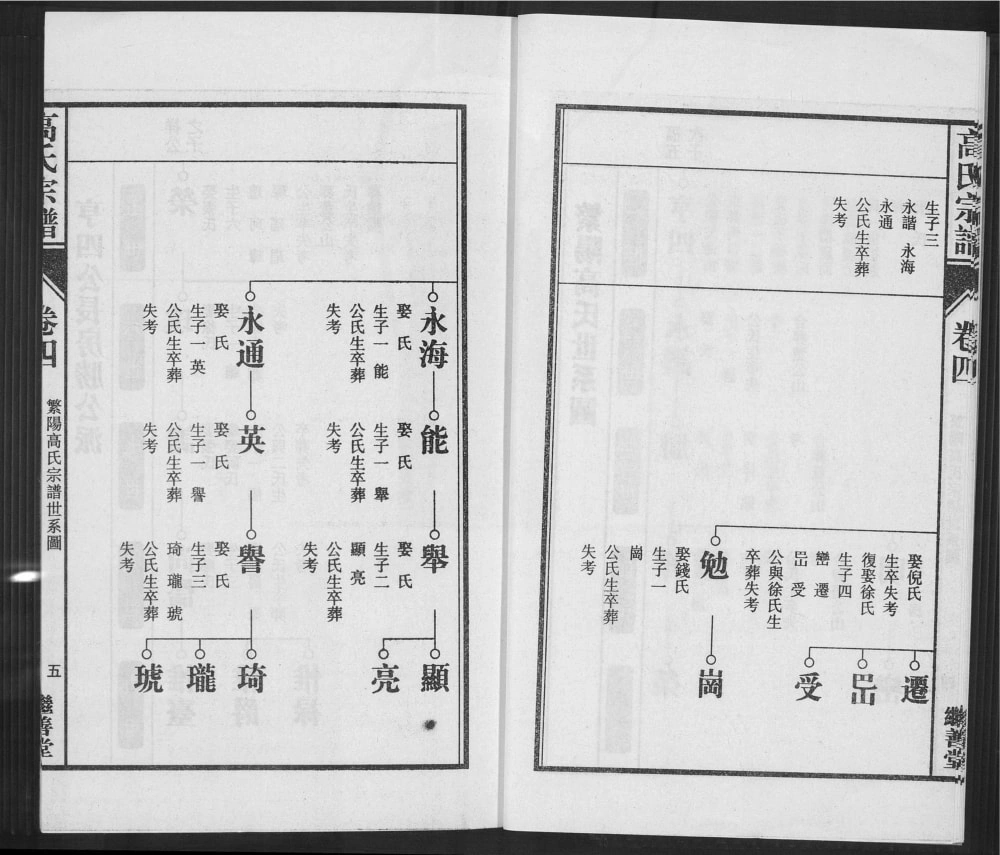 高氏宗譜
卷四
繼善堂
生子三
永譜 永海
永通
公氏生卒葬
失考
娶倪氏
生卒失考
復娶徐氏
生子四
巒 遷
岊 受
公與徐氏生
卒葬失考
遷
岊
受
勉
娶錢氏
生子一
崗
公氏生卒葬
失考
崗
永海
娶 氏
生子一 能
公氏生卒葬
失考
能
娶 氏
生子一 舉
公氏生卒葬
失考
舉
娶 氏
生子二
顯 亮
公氏生卒葬
失考
顯
亮
永通
娶 氏
生子一 英
公氏生卒葬
失考
英
娶 氏
生子一 譽
公氏生卒葬
失考
譽
娶 氏
生子三
琦 瓏 琥
公氏生卒葬
失考
琦
瓏
琥
高氏宗譜
卷四
繁陽高氏宗譜世系圖
五
繼善堂